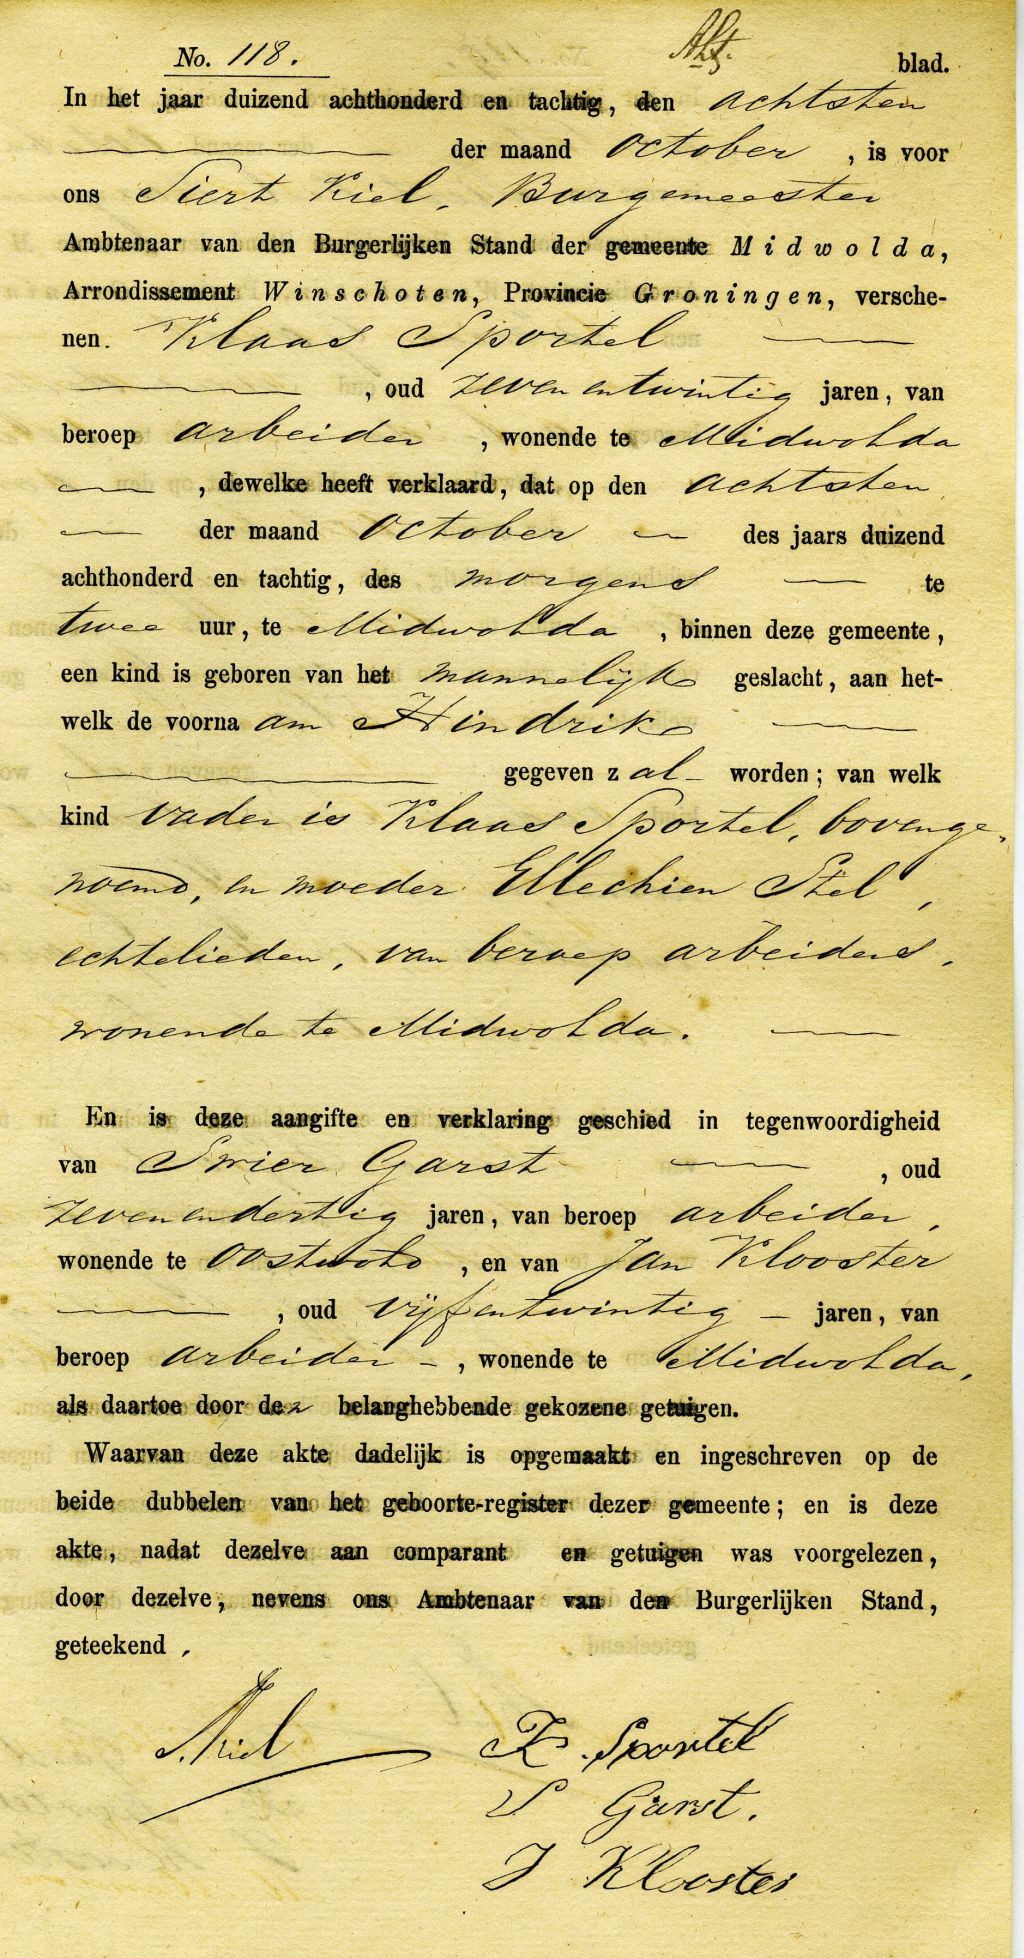 No. 118.
blad.
In het jaar duizend achthonderd en tachtig, den achtsten
der maand October, is voor
ons Siert Kiel, Burgemeester
Ambtenaar van den Burgerlijken Stand der gemeente Midwolda,
Arrondissement Winschoten, Provincie Groningen, versche-
nen. Klaas Sportel
, oud zevenentwintig jaren, van
beroep arbeider, wonende te Midwolda
, dewelke heeft verklaard, dat op den achtsten
der maand October des jaars duizend
achthonderd en tachtig, des morgens te
twee uur, te Midwolda, binnen deze gemeente,
een kind is geboren van het mannelijk geslacht, aan het-
welk de voornaam Hindrik
gegeven zal worden; van welk
kind vader is Klaas Sportel, bovenge-
noemd, en moeder Ellechien Stel,
echtelieden, van beroep arbeiders,
wonende te Midwolda.
En is deze aangifte en verklaring geschied in tegenwoordigheid
van Swier Garst, oud
zevenendertig jaren, van beroep arbeider,
wonende te Oostwold, en van Jan Klooster
, oud vijfentwintig jaren, van
beroep arbeider, wonende te Midwolda,
als daartoe door den belanghebbende gekozene getuigen.
Waarvan deze akte dadelijk is opgemaakt en ingeschreven op de
beide dubbelen van het geboorte-register dezer gemeente; en is deze
akte, nadat dezelve aan comparant en getuigen was voorgelezen,
door dezelve, nevens ons Ambtenaar van den Burgerlijken Stand,
geteekend.
S. Kiel
K. Sportel
S Garst.
J Klooster